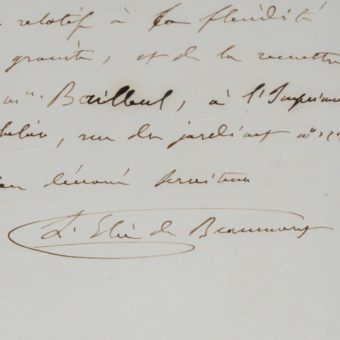 relatif à la fluidité
granite, et de la remettre
Bailleul, à l'Imprim
helier, rue du jardinet n° 12
dévoué serviteur
L. Elie de Beaumont